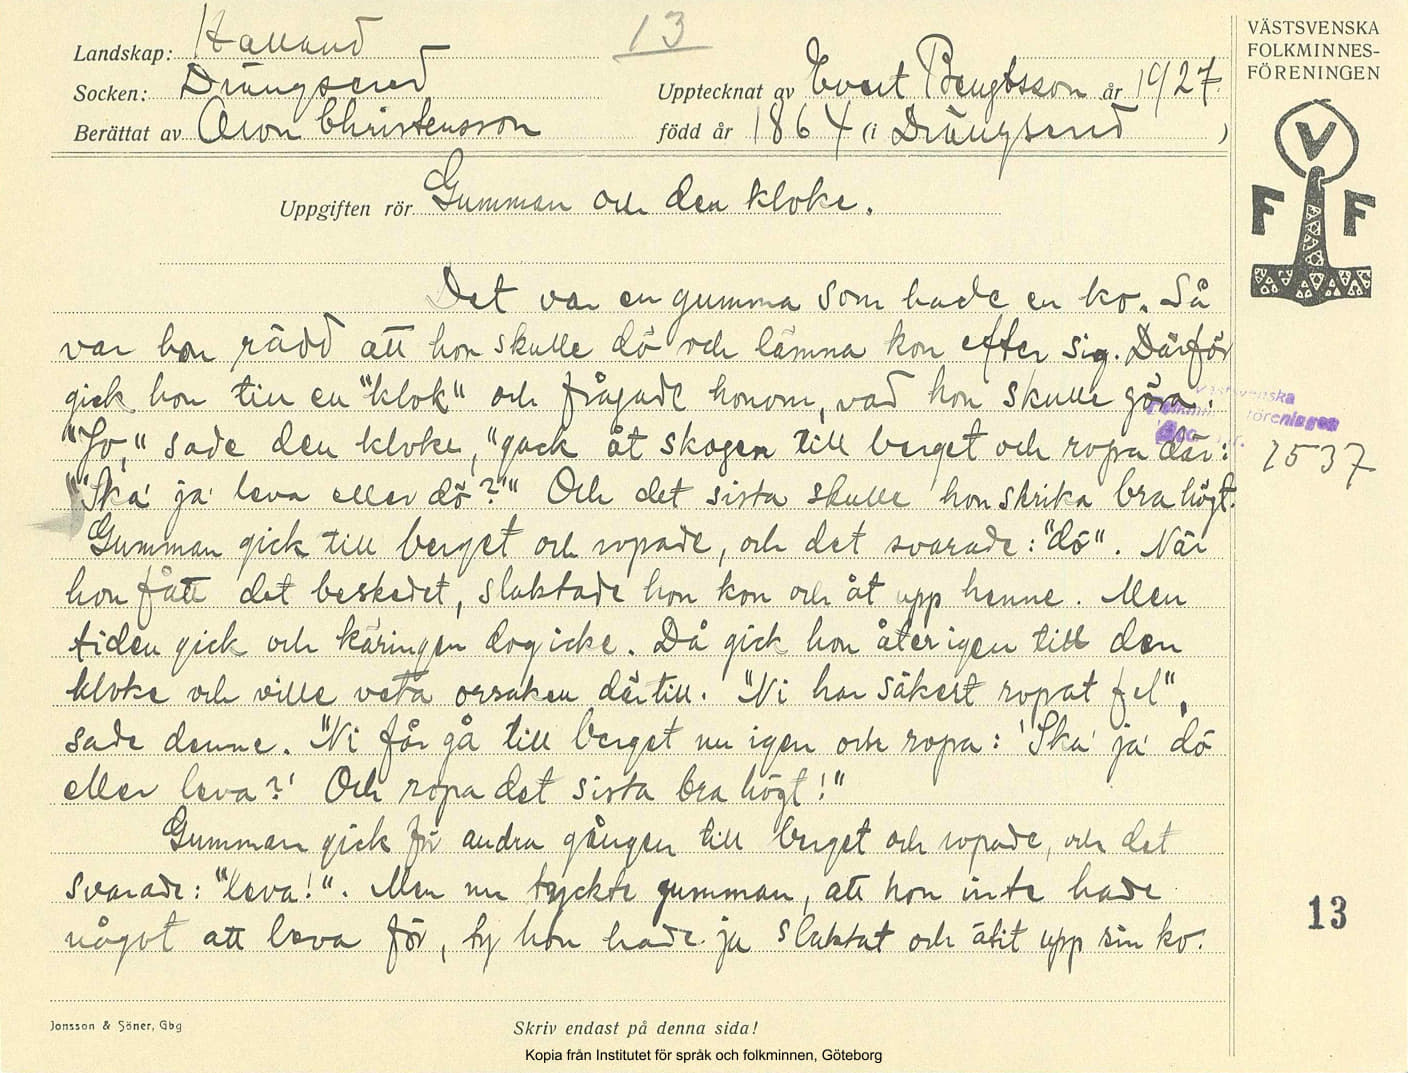 Landskap: Halland
13
Socken: Drängsered
Upptecknat av Evert Bengtsson år 1927.
Berättat av Aron Christensson
född år 1864 (i Drängsered)
Uppgiften rör Gumman och den kloke.
Det var en gumma som hade en ko. Så
var hon rädd att hon skulle dö och lämna kon efter sig. Därför
gick hon till en "klok" och frågade honom, vad hon skulle göra.
"Jo," sade den kloke, "gack åt skogen till berget och ropa där:
"Ska' ja' leva eller dö?'" Och det sista skulle hon skrika bra högt.
Gumman gick till berget och ropade, och det svarade: "dö". När
hon fått det beskedet, slaktade hon kon och åt upp henne. Men
tiden gick och käringen dog icke. Då gick hon återigen till den
kloke och ville veta orsaken därtill. "Ni har säkert ropat fel",
sade denne. "Ni får gå till berget nu igen och ropa: 'Ska' ja' dö
eller leva?' Och ropa det sista bra högt!"
Gumman gick för andra gången till berget och ropade, och det
svarade: "leva!". Men nu tyckte gumman, att hon inte hade
något att leva för, ty hon hade ju slaktat och ätit upp sin ko.
Jonsson & Söner, Gbg
Skriv endast på denna sida!
Kopia från Institutet för språk och folkminnen, Göteborg
VÄSTSVENSKA
FOLKMINNES-
FÖRENINGEN
V
F F
Västsvenska
Folkminnesföreningen
1537
13